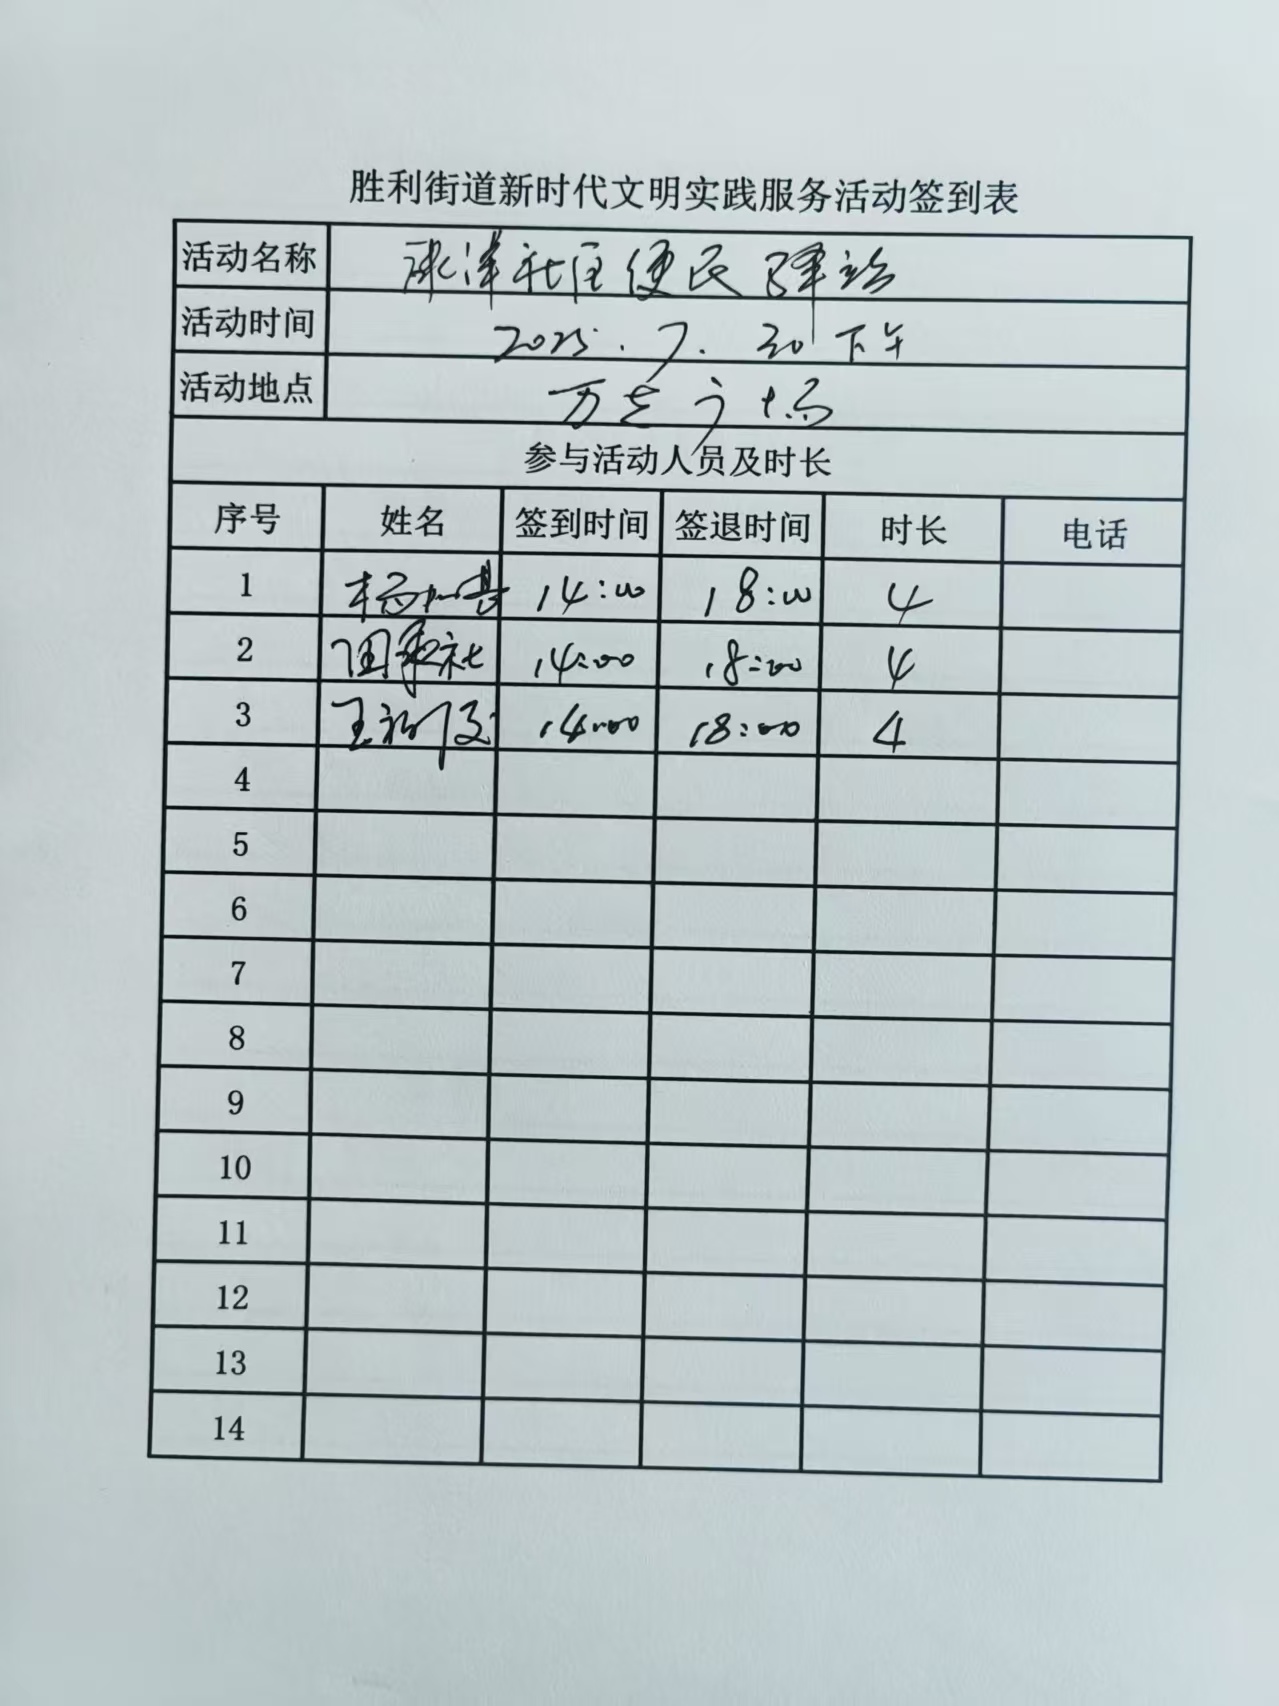 胜利街道新时代文明实践服务活动签到表
活动名称 社区便民驿站
活动时间 2025.7.30下午
活动地点 万达广场
参与活动人员及时长
序号 姓名 签到时间 签退时间 时长 电话
1 14:00 18:00 4
2 14:00 18:00 4
3 王 14:00 18:00 4
4
5
6
7
8
9
10
11
12
13
14